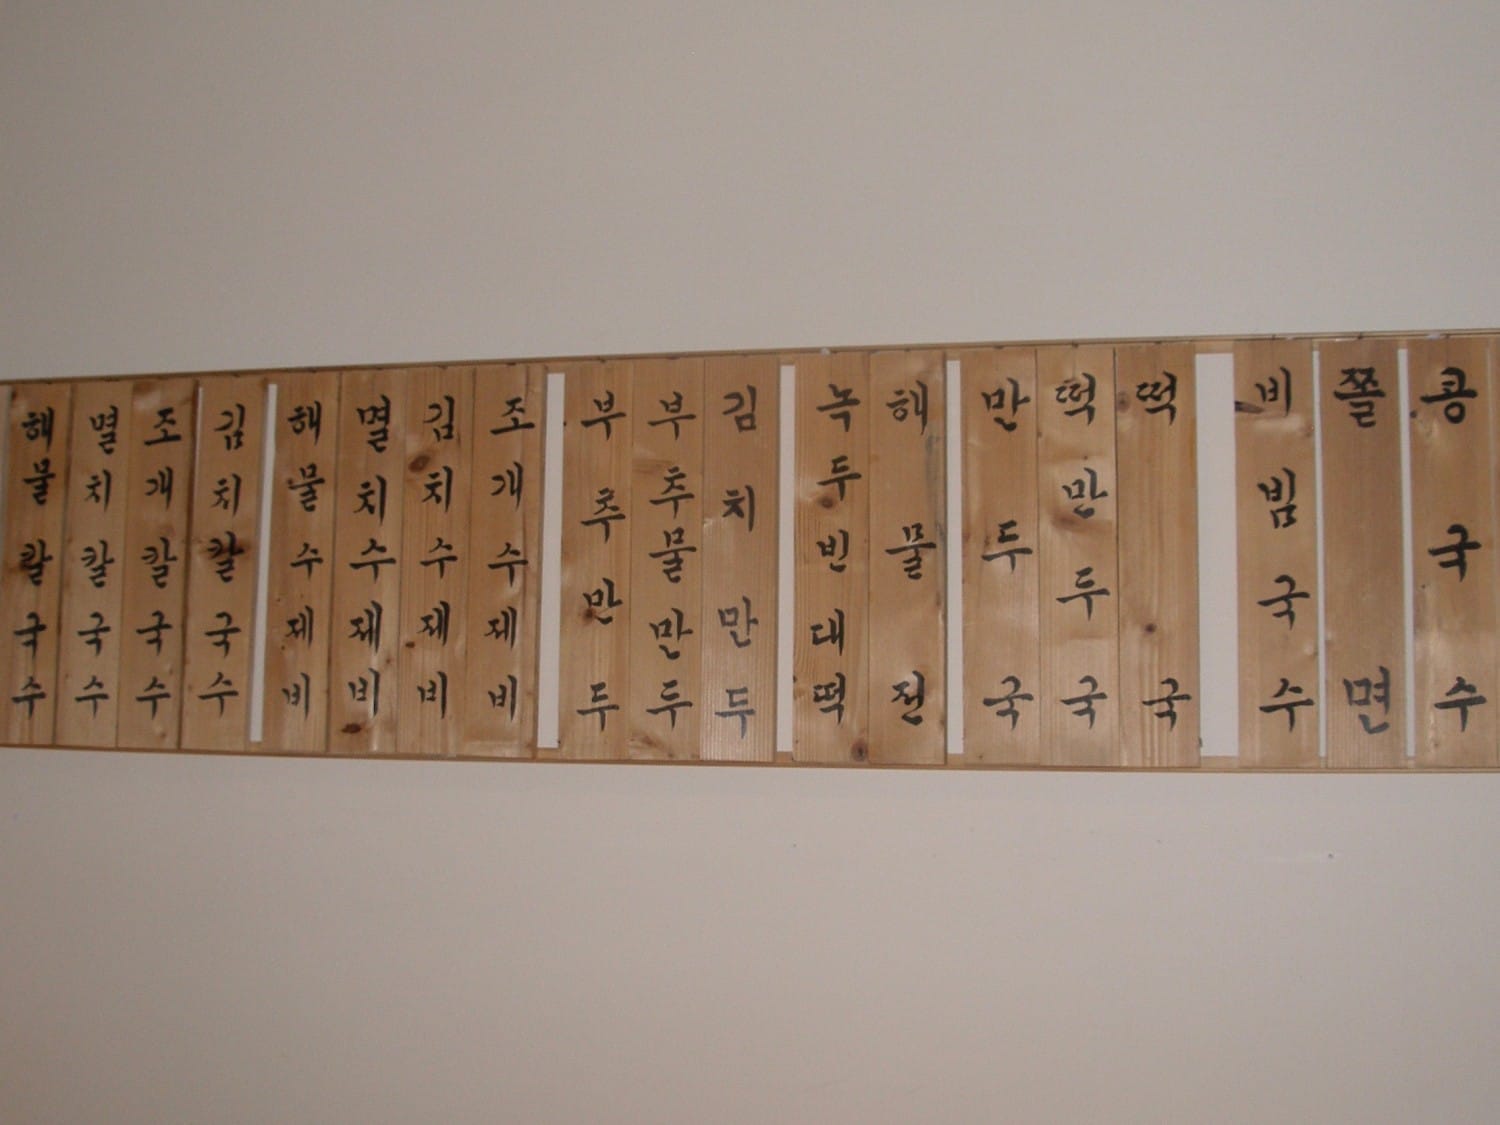 해물칼국수
멸치칼국수
조개칼국수
김치칼국수
해물수제비
멸치수제비
김치수제비
조개수제비
부추만두
부추물만두
김치만두
녹두빈대떡
해물전
만두국
떡만두국
떡국
비빔국수
쫄면
콩국수